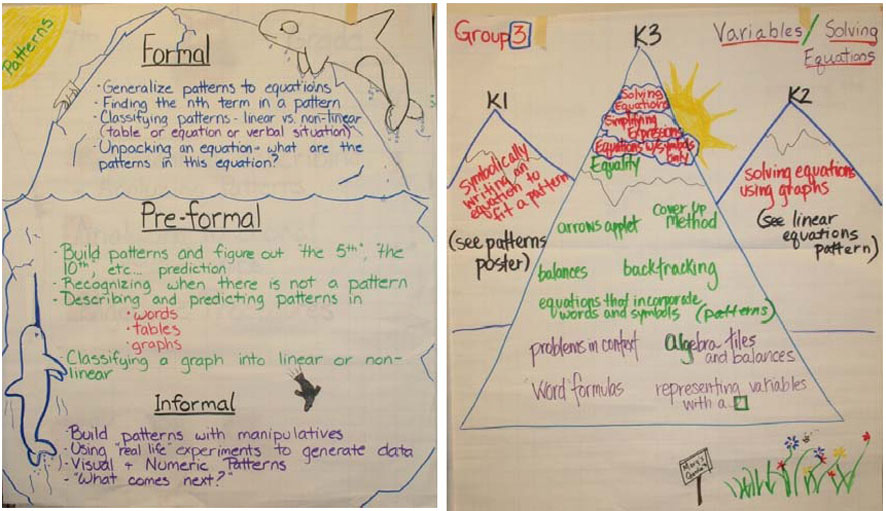 Patterns
Formal
· Generalize patterns to equations
· Finding the nth term in a pattern
· Classifying patterns - linear vs. non-linear
(table or equation or verbal situation)
· Unpacking an equation - what are the
patterns in this equation?
Pre-formal
· Build patterns and figure out "the 5th", "the
10th, etc... prediction
· Recognizing when there is not a pattern
· Describing and predicting patterns in
· words
· tables
· graphs
· Classifying a graph into linear or non-
linear
Informal
· Build patterns with manipulatives
- Using "real life" experiments to generate data
- Visual + Numeric Patterns
- "What comes next?"
Group 3
Variables / Solving
Equations
K3
Solving
Equations
Simplifying
Expressions
Equations w/symbols
only
Equality
K1
Symbolically
writing an
equation to
fit a pattern
(see patterns
poster)
K2
solving equations
using graphs
(see linear
equations
pattern)
arrows applet
cover up
method
balances
backtracking
equations that incorporate
words and symbols (patterns)
problems in context
algebra tiles
and balances
Word formulas
representing variables
with a □
Mary's
Garden